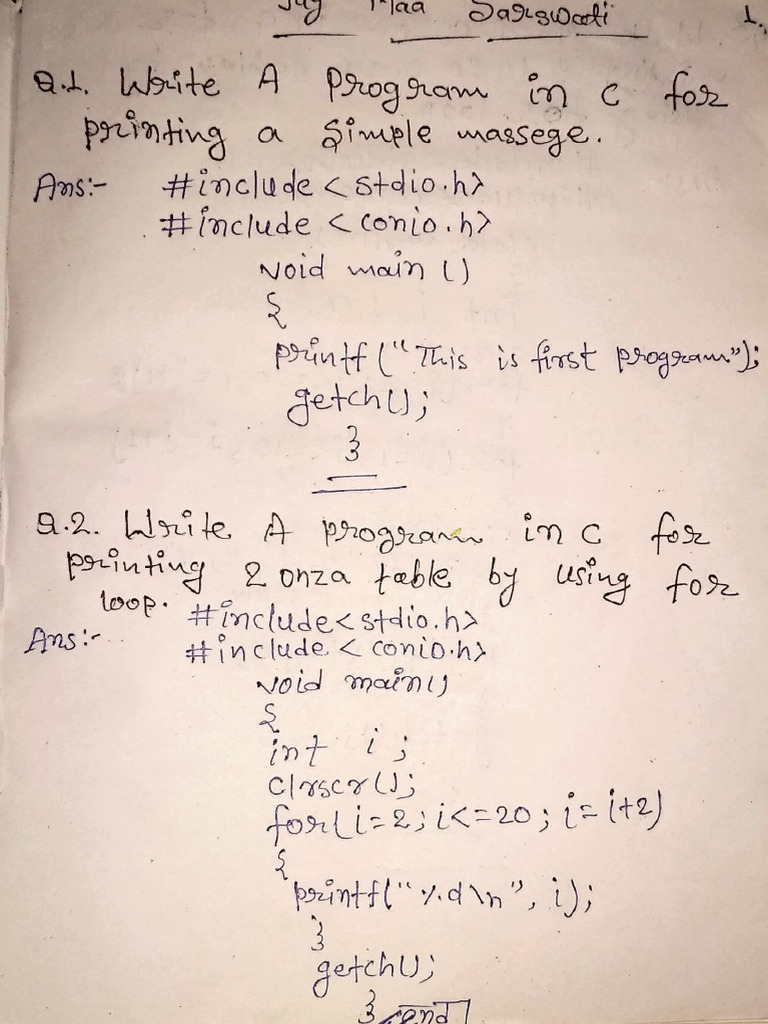 Jay Maa Sarswati 1.
Q.1. Write A Program in C for
printing a simple massege.
Ans:- #include <stdio.h>
#include <conio.h>
void main ()
{
printf ("This is first program");
getch();
}
Q.2. Write A program in C for
printing 2 onza table by using for
loop.
#include<stdio.h>
Ans:- #include <conio.h>
void main()
{
int i ;
clrscr();
for(i=2; i<=20; i=i+2)
{
printf("%d\n", i);
}
getch();
} end